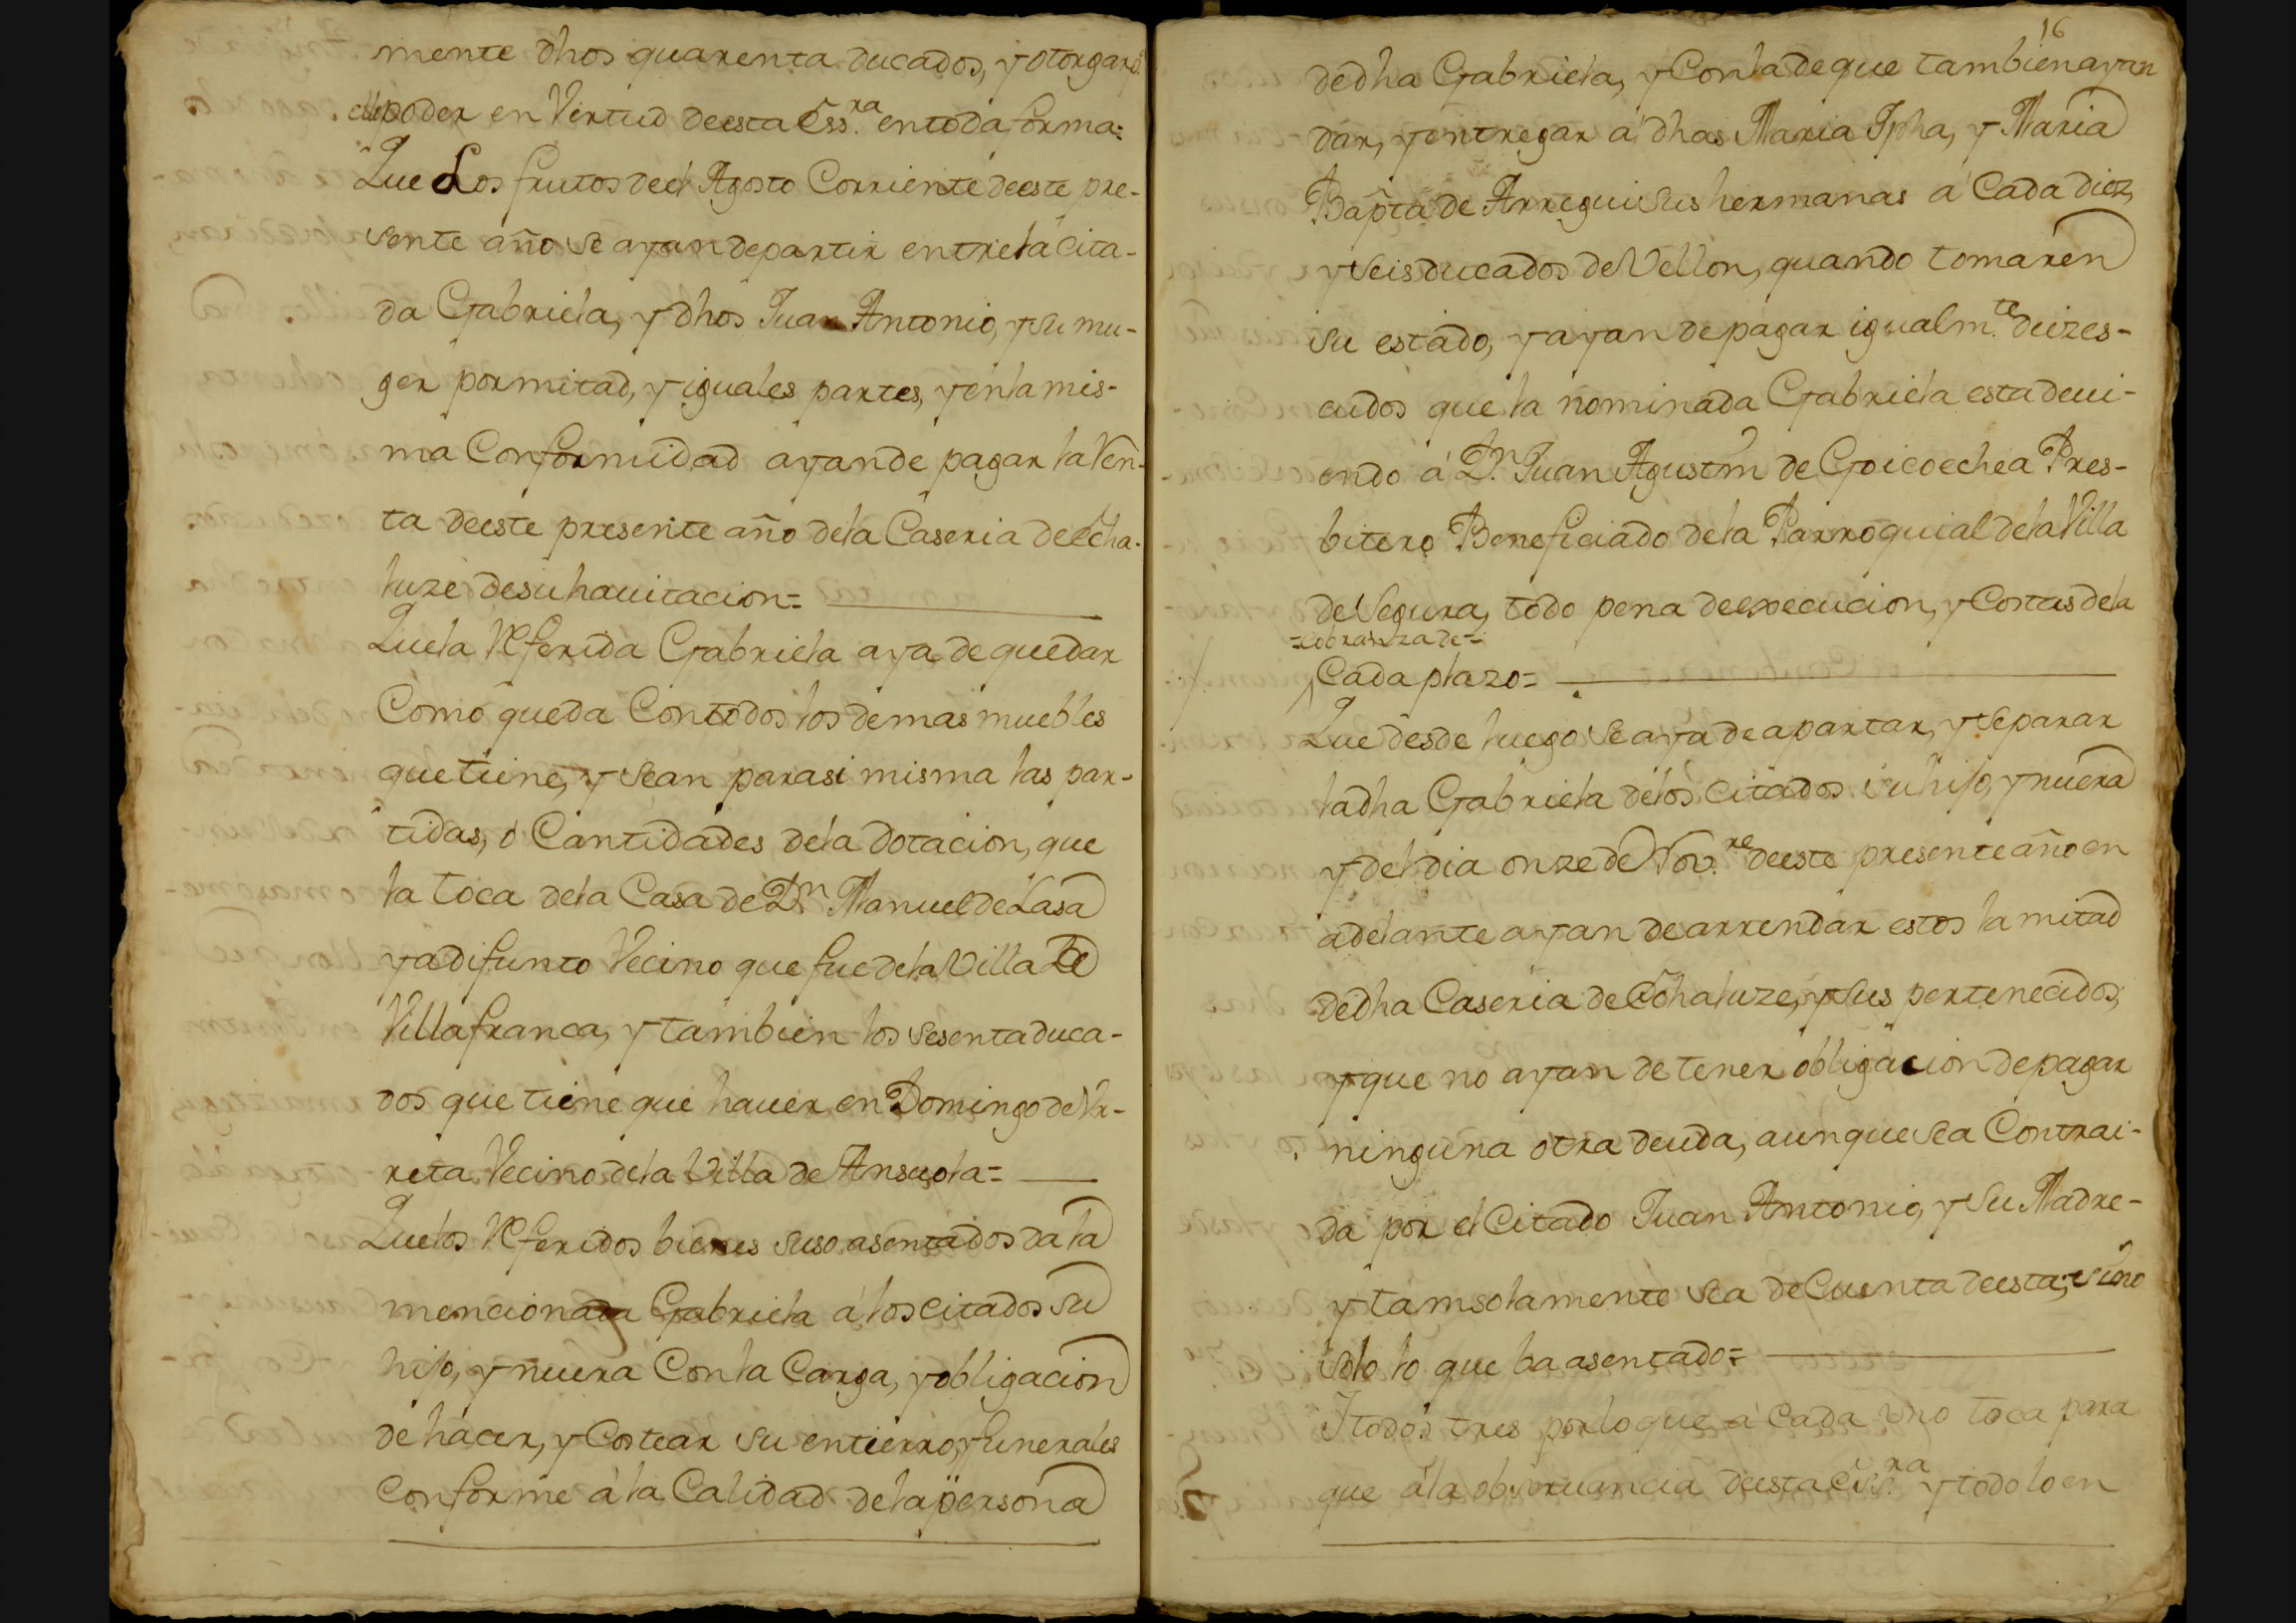 mente dhos quarenta ducados, y otorgar
el poder en Virtud deesta Ess.ra en toda forma=
Que Los frutos de el Agosto Corriente deeste pre-
sente año se ayan departir entre la cita-
da Gabriela, y dhos Juan Antonio, y su mu-
ger por mitad, y iguales partes, y en la mis-
ma Conformidad ayande pagar la Ren-
ta deeste presente año dela Caseria de Echa-
luze desu hauitacion=
Quela Referida Gabriela aya de quedar
Como queda Contodos los demas muebles
que tiene, y sean parasi misma las par-
tidas, ó Cantidades dela dotacion, que
la toca dela Casa de Dn Manuel de Lasa
ya difunto Vecino que fue dela Villa de
Villafranca, y tambien los sesenta duca-
dos que tiene que hauer en Domingo de Vr-
reta Vecino dela Villa de Ansuola=
Quelos Referidos bienes suso asentados da la
mencionada Gabriela á los citados su
hijo, y nuera Con la Carga, y obligacion
de hacer, y Costear su entierro, y funerales
conforme á la Calidad dela persona
16
dedha Gabriela, y Conla deque tambien ayan
dar, y entregar á dhas Maria Jpha, y Maria
Bapta de Arregui sus hermanas á Cada diez,
y seis ducados de Vellon, quando tomaren
su estado, y ayan depagar igualm.te diez es-
cudos que la nominada Gabriela esta deui-
endo á Dn. Juan Agustin de Goicoechea Pres-
bitero Beneficiado dela Parroquial dela Villa
de Segura, todo pena de execucion, y Costas dela
=cobranza de=
Cada plazo=
Que desde luego se aya de apartar, y separar
ladha Gabriela delos citados su hijo, y nuera
y del dia onze de Nov.re deeste presente año en
adelante ayan de arrendar estos la mitad
dedha Caseria de Echaluze, y sus pertenecidos,
y que no ayan de tener obligacion depagar
ninguna otra deuda, aunque sea Contrai-
da por el Citado Juan Antonio, y su Madre-
y tamsolamente sea de Cuenta deesta, sino
solo lo que ba asentado=
I todos tres por lo que á Cada uno toca para
que á la obseruancia deesta ess.ra y todo lo en